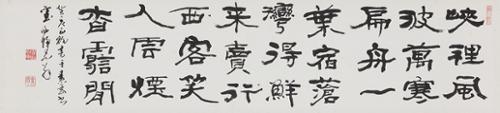 峽裡風
波萬寒
扁舟一
葉宿滄
灣得鮮
来賣行
西客笑
入雲煙
杳靄間